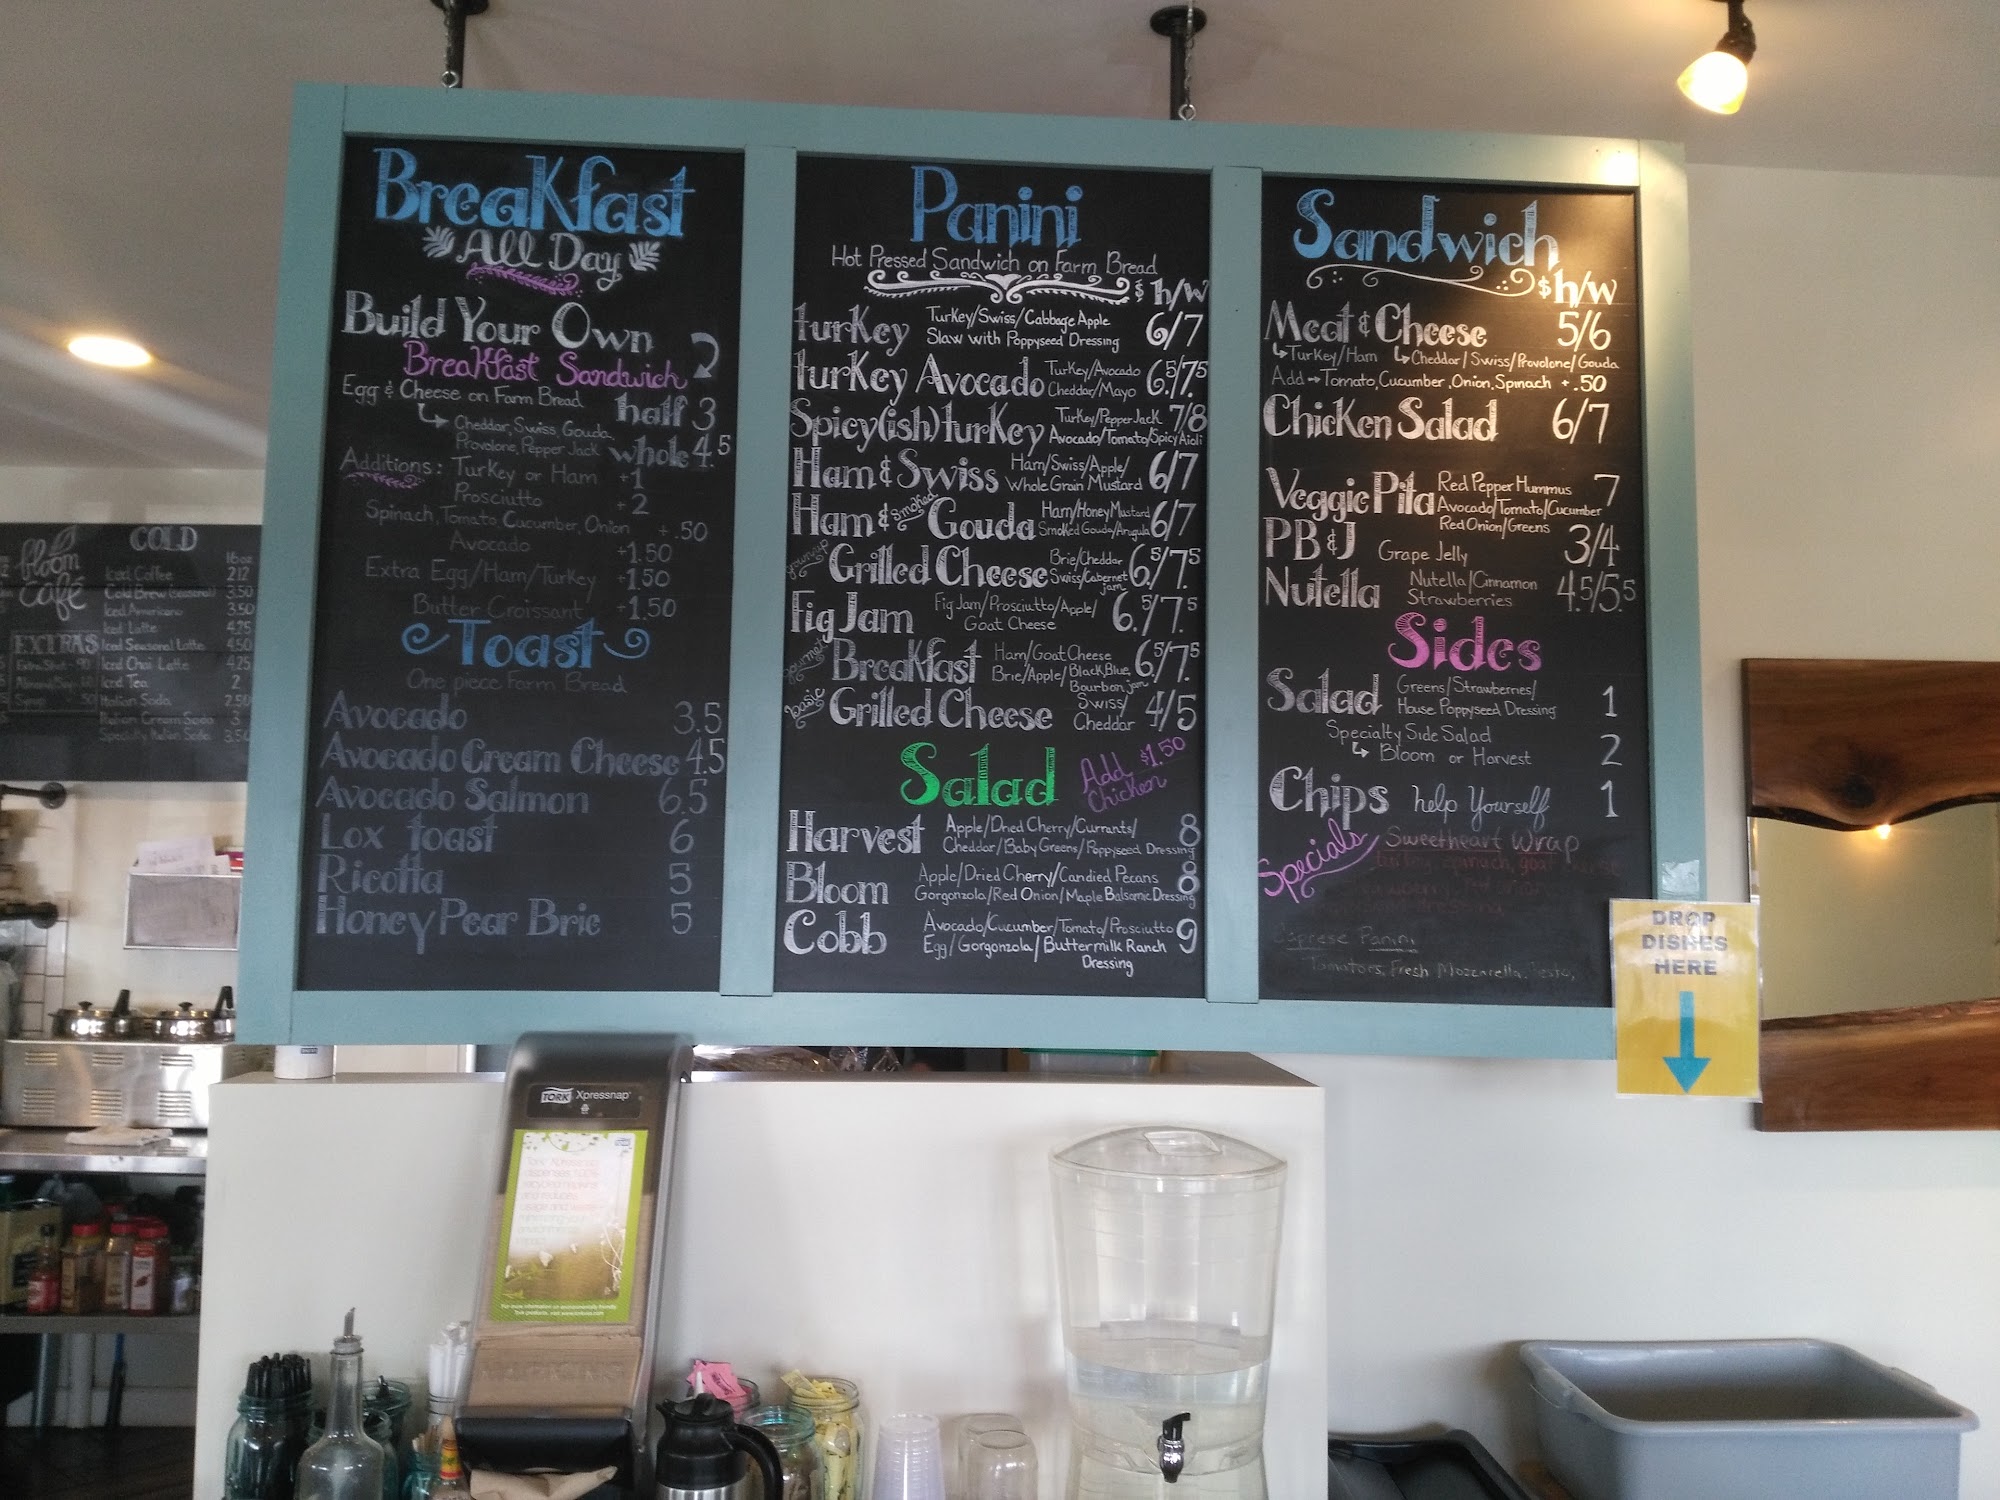 Breakfast
All Day
Build Your Own
Breakfast Sandwich
Egg & Cheese on Farm Bread
half 3
Cheddar, Swiss, Gouda,
Provolone, Pepper Jack
whole 4.5
Additions: Turkey or Ham +1
Prosciutto +2
Spinach, Tomato, Cucumber, Onion +.50
Avocado +1.50
Extra Egg/Ham/Turkey +1.50
Butter Croissant +1.50
Toast
One piece Farm Bread
Avocado 3.5
Avocado Cream Cheese 4.5
Avocado Salmon 6.5
Lox toast 6
Ricotta 5
Honey Pear Brie 5
Panini
Hot Pressed Sandwich on Farm Bread
$ h/w
turkey Turkey/Swiss/Cabbage Apple 6/7
Slaw with Poppyseed Dressing
turkey Avocado Turkey/Avocado 6.5/7.5
Cheddar/Mayo
Spicy(ish) turkey Turkey/Pepper Jack 7/8
Avocado/Tomato/Spicy Aioli
Ham & Swiss Ham/Swiss/Apple/ 6/7
Whole Grain Mustard
Ham & Smoked Gouda Ham/Honey Mustard 6/7
Smoked Gouda/Arugula
grownup Grilled Cheese Brie/Cheddar 6.5/7.5
Swiss/Cabernet
jam
Fig Jam Fig Jam/Prosciutto/Apple/ 6.5/7.5
Goat Cheese
gourmet Breakfast Ham/Goat Cheese 6.5/7.5
Brie/Apple/Black Blue,
Bourbon jam
basic Grilled Cheese Swiss/ 4/5
Cheddar
Salad
Add $1.50
Chicken
Harvest Apple/Dried Cherry/Currants/ 8
Cheddar/Baby Greens/Poppyseed Dressing
Bloom Apple/Dried Cherry/Candied Pecans 8
Gorgonzola/Red Onion/Maple Balsamic Dressing
Cobb Avocado/Cucumber/Tomato/Prosciutto 9
Egg/Gorgonzola/Buttermilk Ranch
Dressing
Sandwich
$ h/w
Meat & Cheese 5/6
Turkey/Ham Cheddar/Swiss/Provolone/Gouda
Add Tomato, Cucumber, Onion, Spinach +.50
Chicken Salad 6/7
Veggie Pita Red Pepper Hummus 7
Avocado/Tomato/Cucumber
Red Onion/Greens
PB&J Grape Jelly 3/4
Nutella Nutella/Cinnamon 4.5/5.5
Strawberries
Sides
Salad Greens/Strawberries/ 1
House Poppyseed Dressing
Specialty Side Salad
Bloom or Harvest 2
Chips help Yourself 1
Specials Sweetheart Wrap
spinach, goat cheese
Panini
Tomatoes, Fresh Mozzarella, Pesto,
DROP
DISHES
HERE
bloom
café
COLD
16oz
Iced Coffee 2.12
Cold Brew (seasonal) 3.50
Iced Americano 3.50
Iced Latte 4.25
Iced Seasonal Latte 4.50
Iced Chai Latte 4.25
Iced Tea 2
Italian Soda 2.50
Italian Cream Soda 3
Specialty Italian Soda 3.50
EXTRAS
Extra Shot .90
Syrup .50
TORK Xpressnap
Tork Xpressnap
dispenses 100%
recycled napkins
and reduces
usage and waste -
minimizing your
environmental
impact
For more information on environmentally friendly
Tork products, visit www.torkusa.com